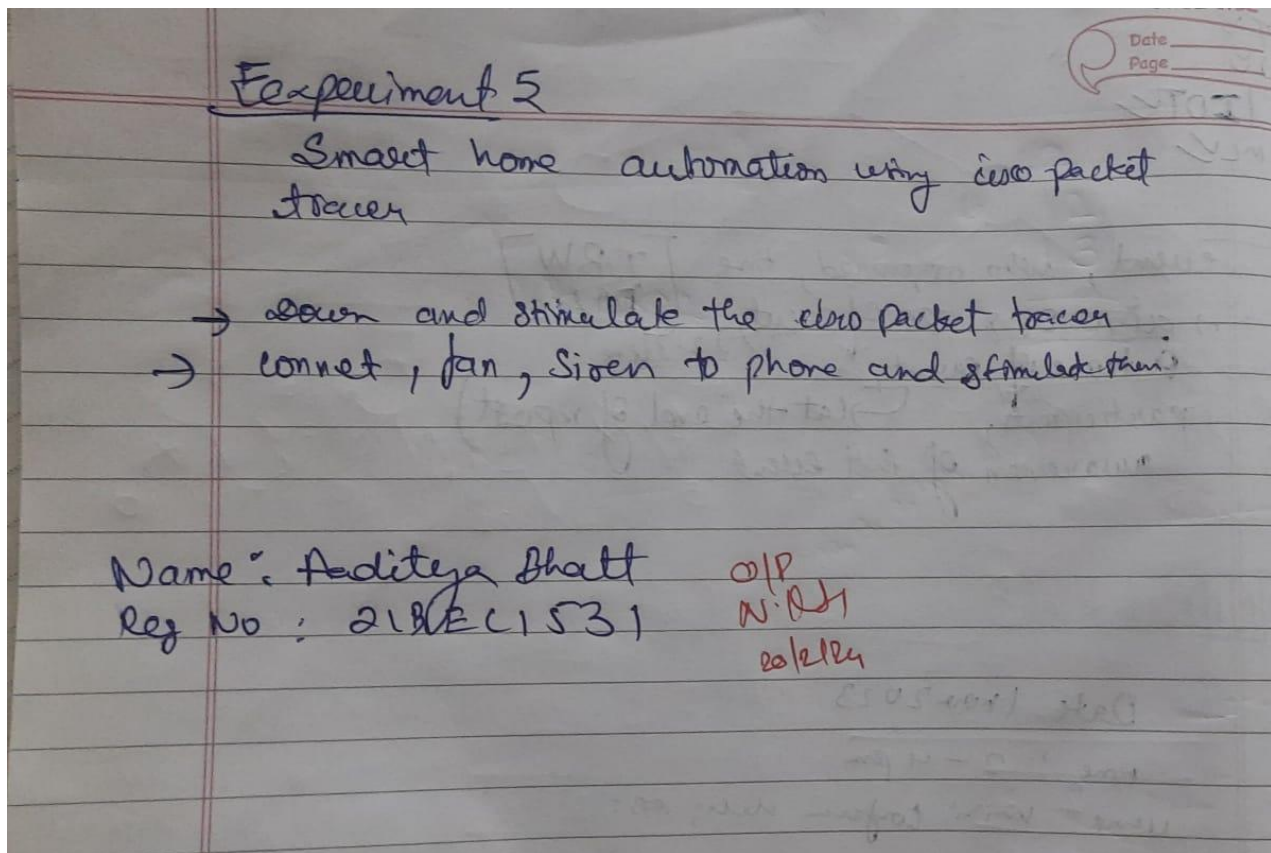 Date
Page
Eexperiment 5
Smart home automation using cisco packet
tracer
→ and stimulate the cisco packet tracer
→ connet, fan, Siren to phone and stimulate them
Name: Aaditya Bhatt
O/P
Reg No: 21BEC1531
20/2/24